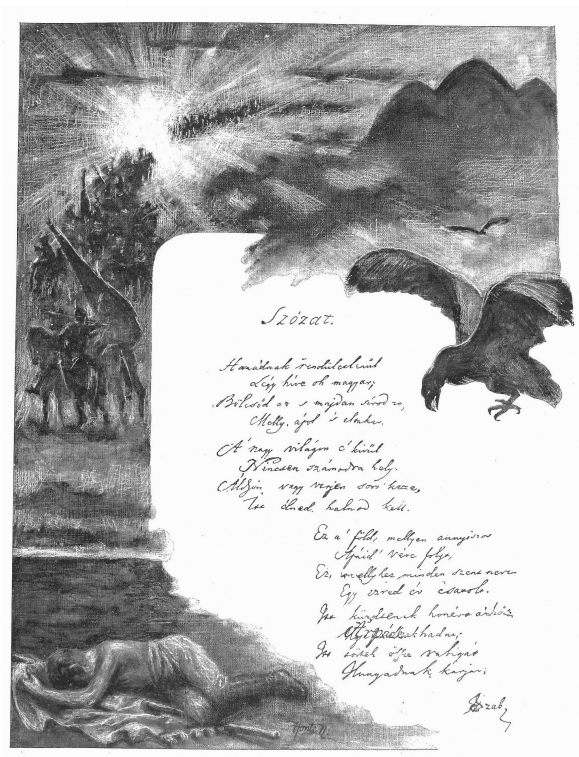 Szózat.
Hazádnak rendületlenűl
Légy híve oh magyar;
Bölcsőd az s majdan sírod is,
Melly ápol s eltakar.
A' nagy világon e' kivűl
Nincsen számodra hely.
Áldjon vagy verjen sors keze,
Itt élned, halnod kell.
Ez a' föld, mellyen annyiszor
Apáid' vére folyt,
Ez, mellyhez minden szent nevet
Egy ezred év csatolt.
Itt küzdtenek honért a hős
Árpádnak hadai;
Itt törtek össze rabigát
Hunyadnak karjai;